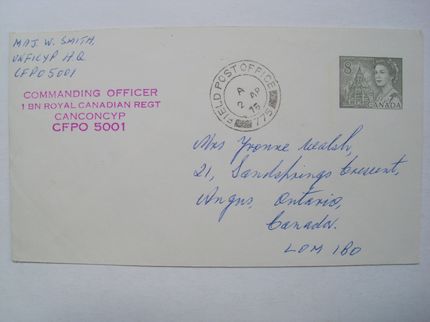 MAJ. W. SMITH,
UNFICYP HQ
CFPO 5001
COMMANDING OFFICER
1 BN ROYAL CANADIAN REGT
CANCONCYP
CFPO 5001
FIELD POST OFFICE
A
2 AP
75
775
8
CANADA
Mrs Yvonne Walsh,
21, Sandsprings Crescent,
Angus, Ontario,
Canada.
L0M 1B0